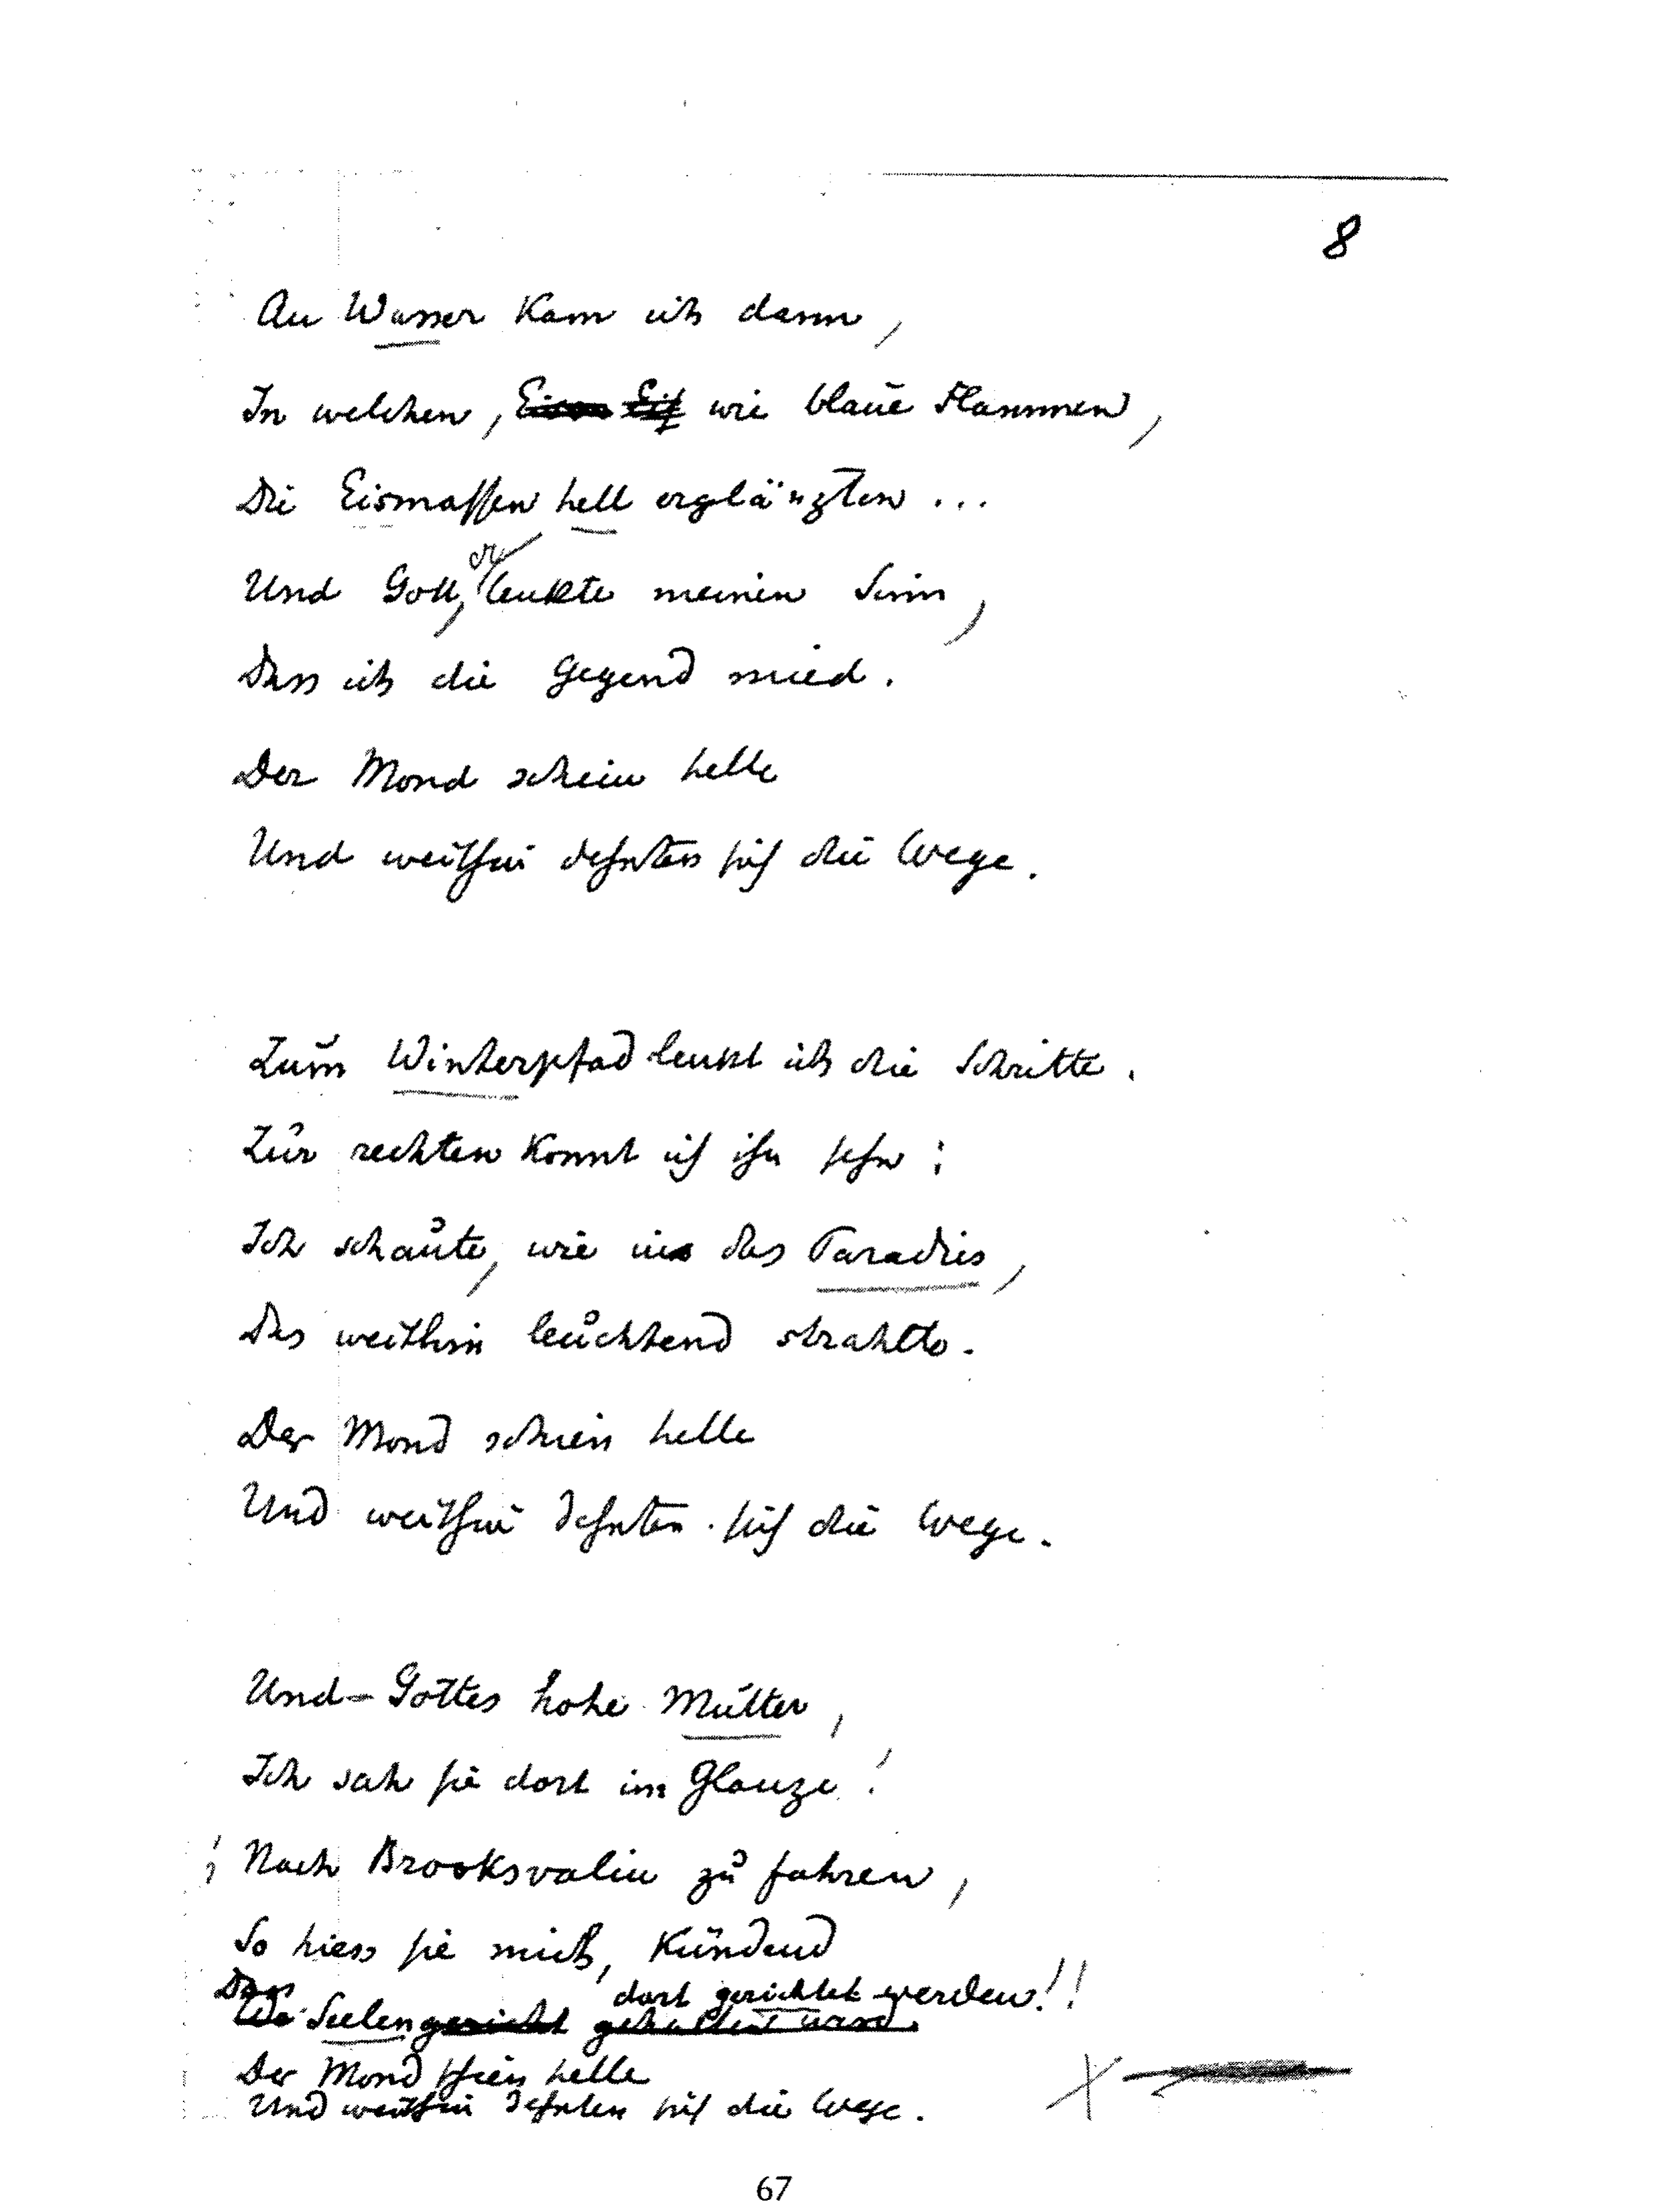 8
An Wasser kam ich dann,
In welchen, Eisen Eis wie blaue Flammen,
Die Eismassen hell erglänzten ...
Und Gott, er lenkte meinen Sinn,
Dass ich die Gegend mied.
Der Mond schein helle
Und weithin dehnten sich die Wege.
Zum Winterpfad lenkt ich die Schritte.
Zur rechten konnt ich ihn sehn:
Ich schaute, wie in das Paradies,
Das weithin leuchtend strahlte.
Der Mond schien helle
Und weithin dehnten sich die Wege.
Und – Gottes hohe Mutter,
Ich sah sie dort im Glanze!
! Nach Brooksvalin zu fahren,
So hiess sie mich, kündend
Dass dort gerichtet werden!!
Wo Seelengericht gehalten wird.
Der Mond schien helle
Und weithin dehnten sich die Wege.
67